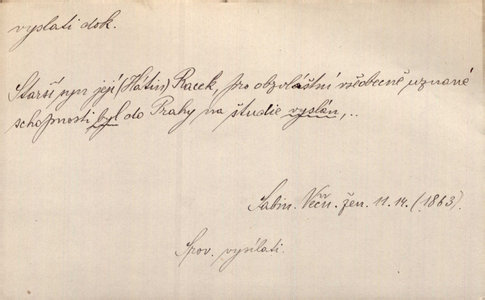 vyslati dok.
Starší syn její (Hátin) Racek, pro obzvláštní všeobecně uznané
schopnosti byl do Prahy na studie vyslán,..
Sabin. Věčn. žen. 11. 14. (1863).
Srov. vysílati.